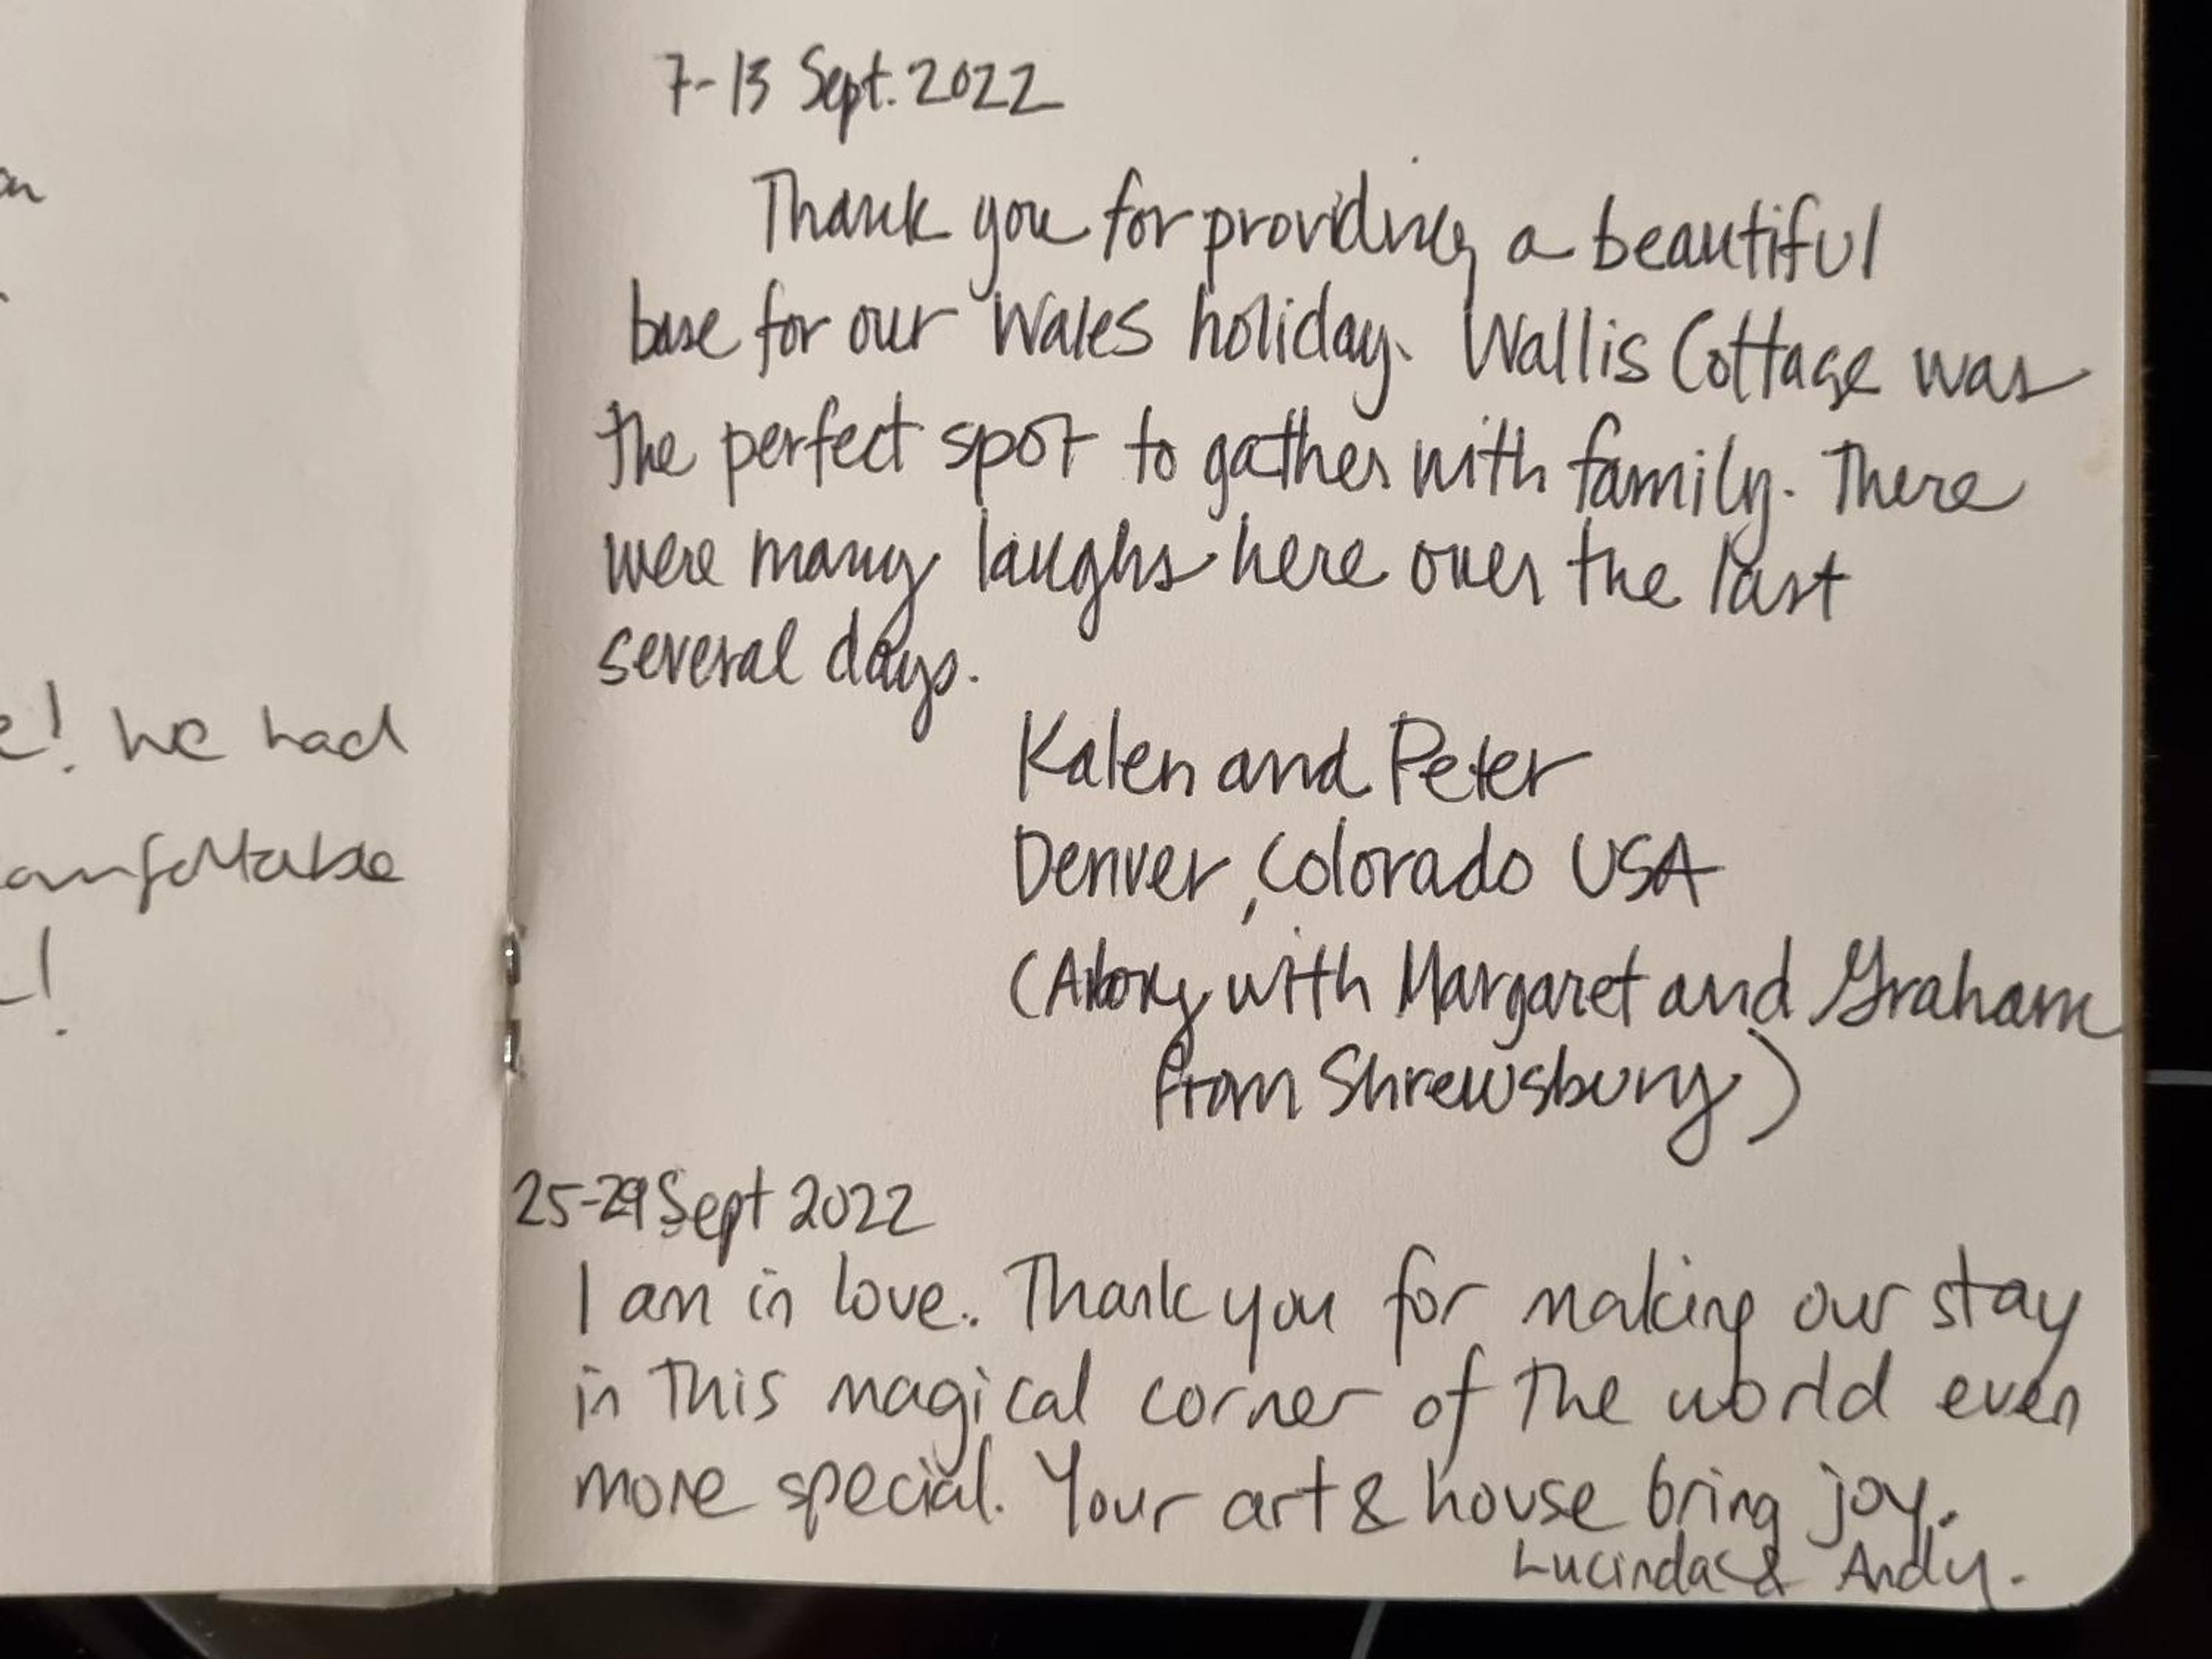 on
e! we had
comfortable
!
7-13 Sept. 2022
Thank you for providing a beautiful
base for our Wales holiday. Wallis Cottage was
the perfect spot to gather with family. There
were many laughs here over the last
several days.
Kalen and Peter
Denver, Colorado USA
(Along with Margaret and Graham
from Shrewsbury)
25-29 Sept 2022
I am in love. Thank you for making our stay
in this magical corner of the world even
more special. Your art & house bring joy.
Lucinda & Andy.